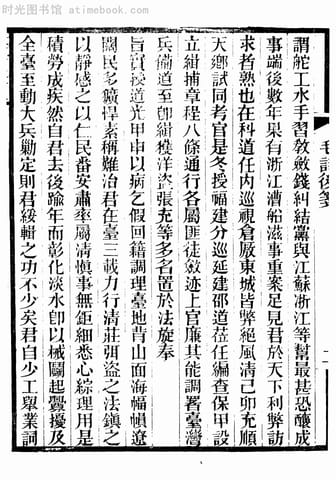 时光图书馆 atimebook.com
毛詩後箋
二
謂舵工水手習敎斂錢糾結黨與江蘇浙江等幫最甚恐釀成
事端後數年果有浙江漕船滋事重案足見君於天下利弊訪
求者熟也在科道任内巡視倉厰東城皆弊絕風淸己卯充順
天鄕試同考官是冬授福建分巡延建邵道莅任編查保甲設
立緝捕章程八條通行各屬匪徒斂迹上官廉其能調署臺灣
兵備道至卽緝獲洋盜張充等多名置於法旋奉
旨實授道光甲申以病乞假回籍調理臺地背山面海幅幀遼
闊民多獷悍素稱難治君在臺三載力行淸莊弭盜之法鎭之
以靜感之以仁民番安肅率屬淸愼事無鉅細悉心綜理用是
積勞成疾然自君去後踰年而彰化淡水卽以械鬬起釁擾及
全臺至動大兵勦定則君綏輯之功不少矣君自少工舉業詞